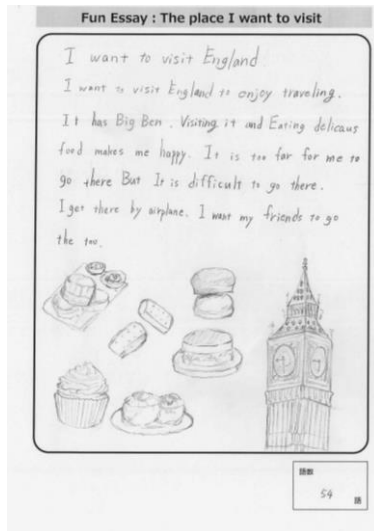 Fun Essay : The place I want to visit
I want to visit England
I want to visit England to onjoy traveling.
It has Big Ben. Visiting it and Eating delicaus
food makes me happy. It is too far for me to
go there But It is difficult to go there.
I get there by airplane. I want my friends to go
the too.
語数
54 語